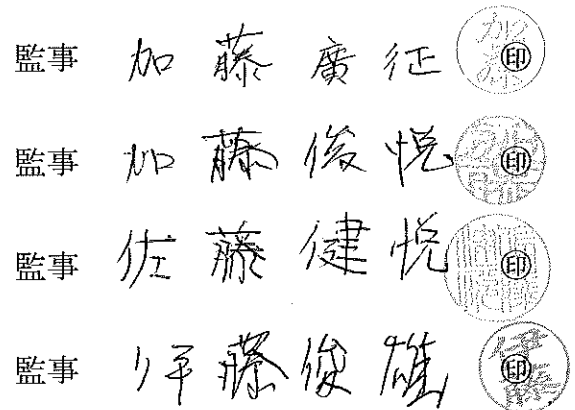 監事 加藤廣征 ㊞
監事 加藤俊悦 ㊞
監事 佐藤健悦 ㊞
監事 伊藤俊雄 ㊞